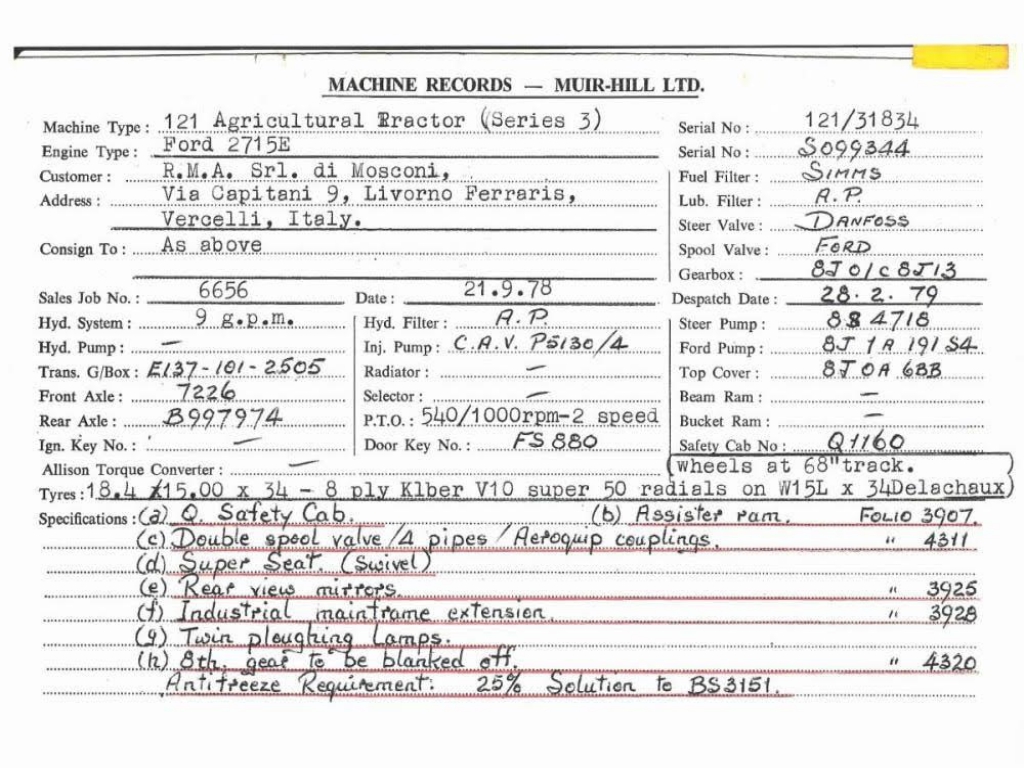 MACHINE RECORDS — MUIR-HILL LTD.
Machine Type : 121 Agricultural Tractor (Series 3) Serial No : 121/31834
Engine Type : Ford 2715E Serial No : S099344
Customer : R.M.A. Srl. di Mosconi, Fuel Filter : SIMMS
Address : Via Capitani 9, Livorno Ferraris, Lub. Filter : A.P.
Vercelli, Italy. Steer Valve : DANFOSS
Consign To : As above Spool Valve : FORD
Gearbox : 8J 01/C 8J13
Sales Job No. : 6656 Date : 21.9.78 Despatch Date : 28.2.79
Hyd. System : 9 g.p.m. Hyd. Filter : A.P. Steer Pump : 88 4718
Hyd. Pump : — Inj. Pump : C.A.V. P5130/4 Ford Pump : 8J 1A 191 S4
Trans. G/Box : E137-101-2505 Radiator : — Top Cover : 8J 0A 6BB
Front Axle : 7226 Selector : — Beam Ram : —
Rear Axle : B997974 P.T.O. : 540/1000rpm-2 speed Bucket Ram : —
Ign. Key No. : — Door Key No. : FS 880 Safety Cab No : Q1160
Allison Torque Converter : — (wheels at 68"track. )
Tyres : 18.4 /15.00 x 34 - 8 ply Klber V10 super 50 radials on W15L x 34Delachaux)
Specifications : (a) Q. Safety Cab. (b) Assister ram. FOLIO 3907.
(c) Double spool valve/4 pipes/Aeroquip couplings. " 4311
(d) Super Seat. (Swivel)
(e) Rear view mirrors. " 3925
(f) Industrial mainframe extension. " 3928
(g) Twin ploughing lamps.
(h) 8th. gear to be blanked off. " 4320
Antifreeze Requirement: 25% Solution to BS3151.